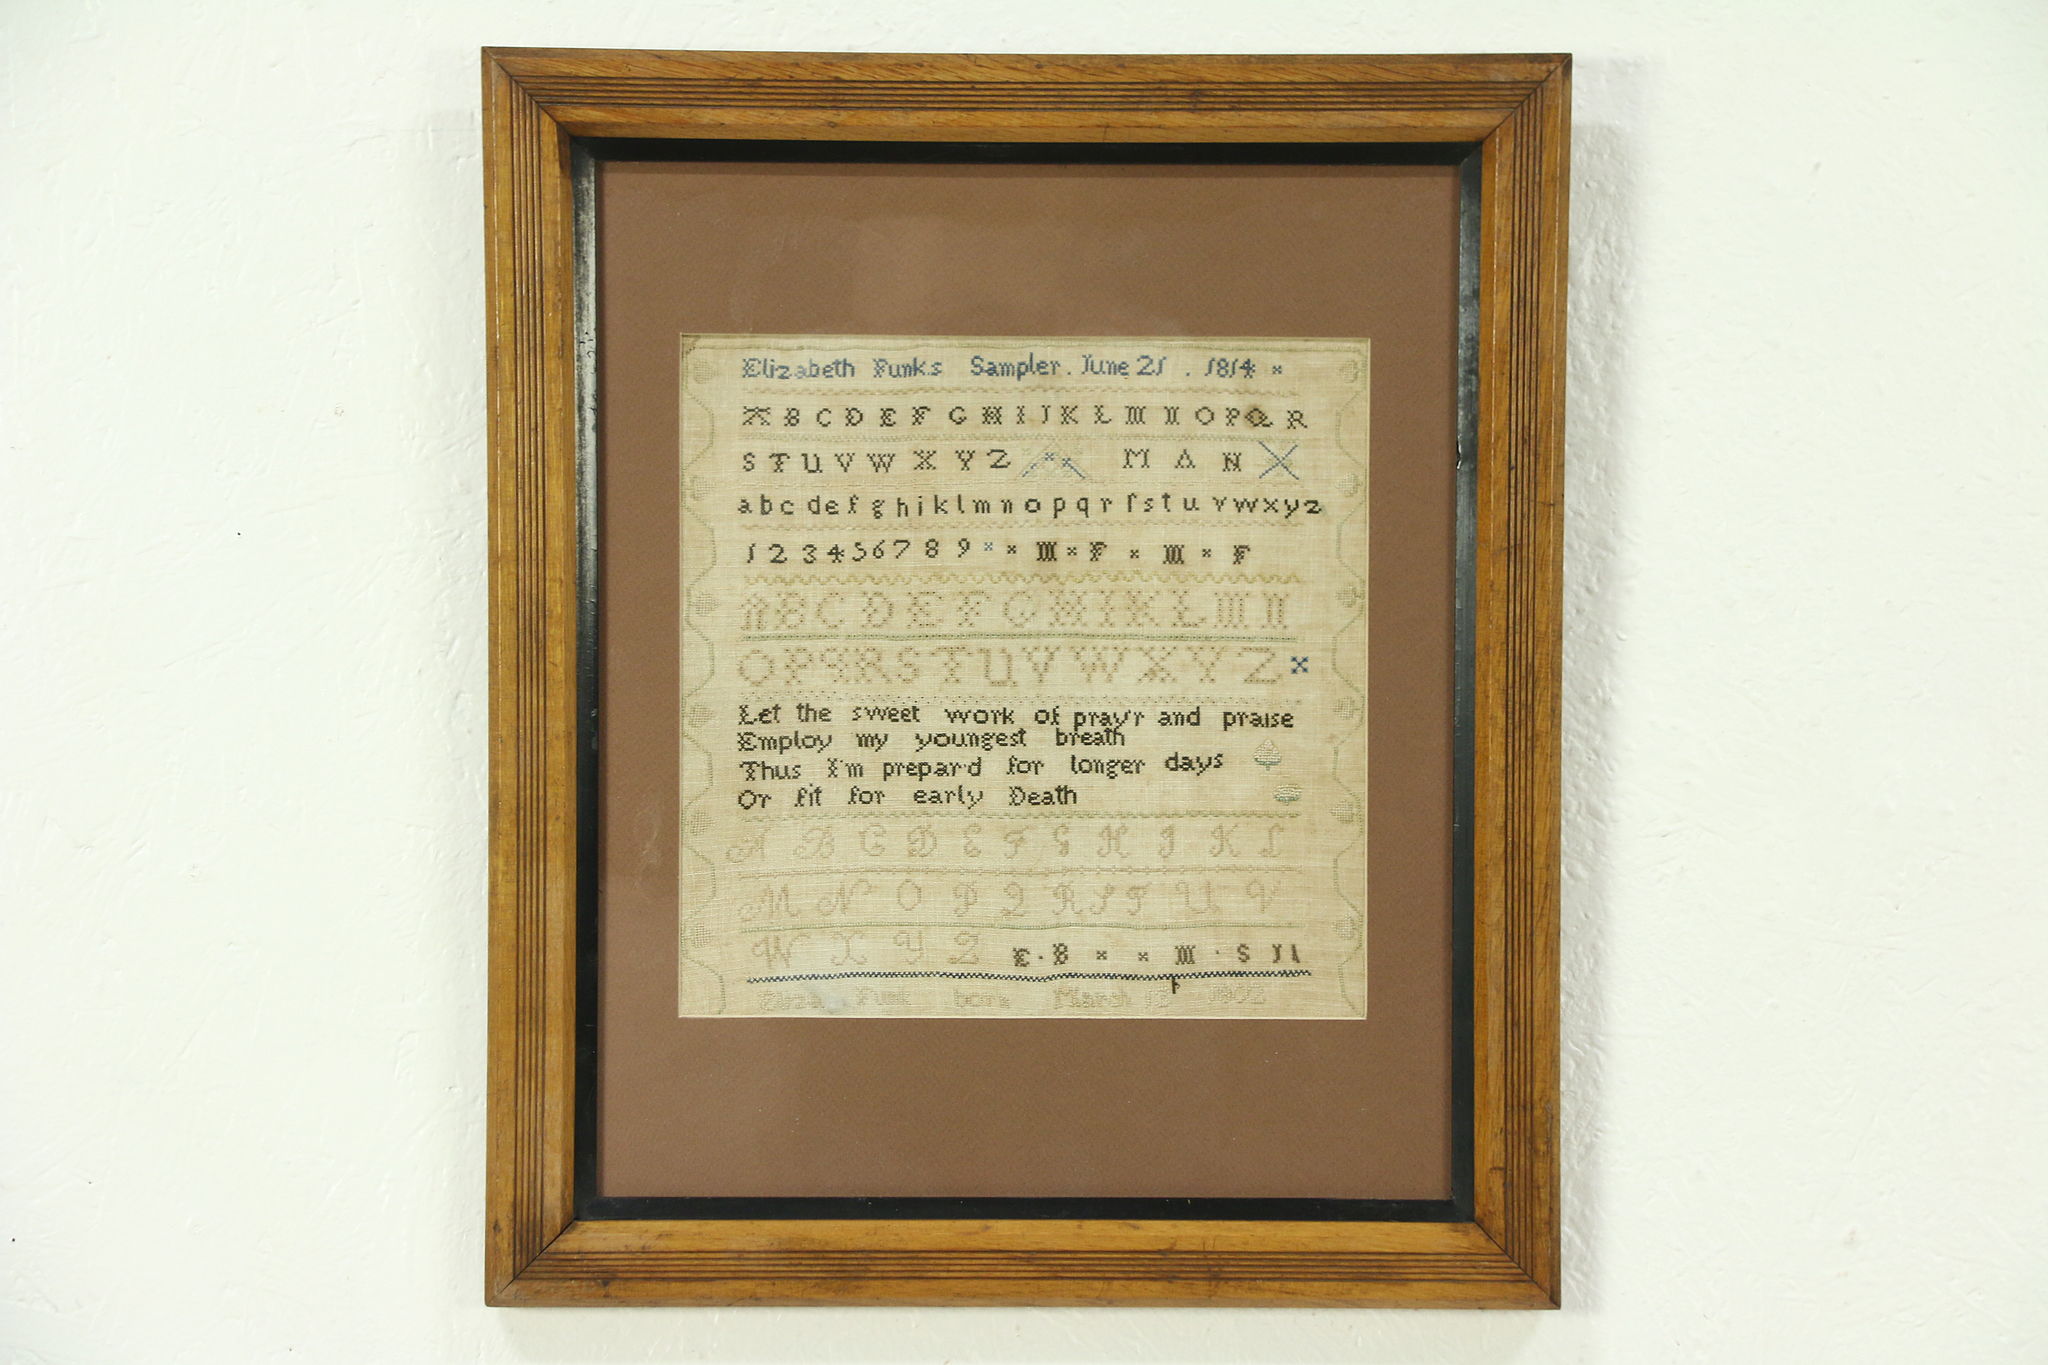 Elizabeth Funks Sampler. June 21 . 1814 x
A B C D E F G H I J K L M N O P Q R
S T U V W X Y Z M A N
a b c d e f g h i k l m n o p q r ſ s t u v w x y z
1 2 3 4 5 6 7 8 9 x x M x F x M x F
A B C D E F G H I K L M N
O P Q R S T U V W X Y Z x
Let the sweet work of pray'r and praise
Employ my youngest breath
Thus I'm prepar'd for longer days
Or fit for early Death
A B C D E F G H I K L
M N O P Q R S T U V
W X Y Z E · B x x M · S
Eliza Funk born March